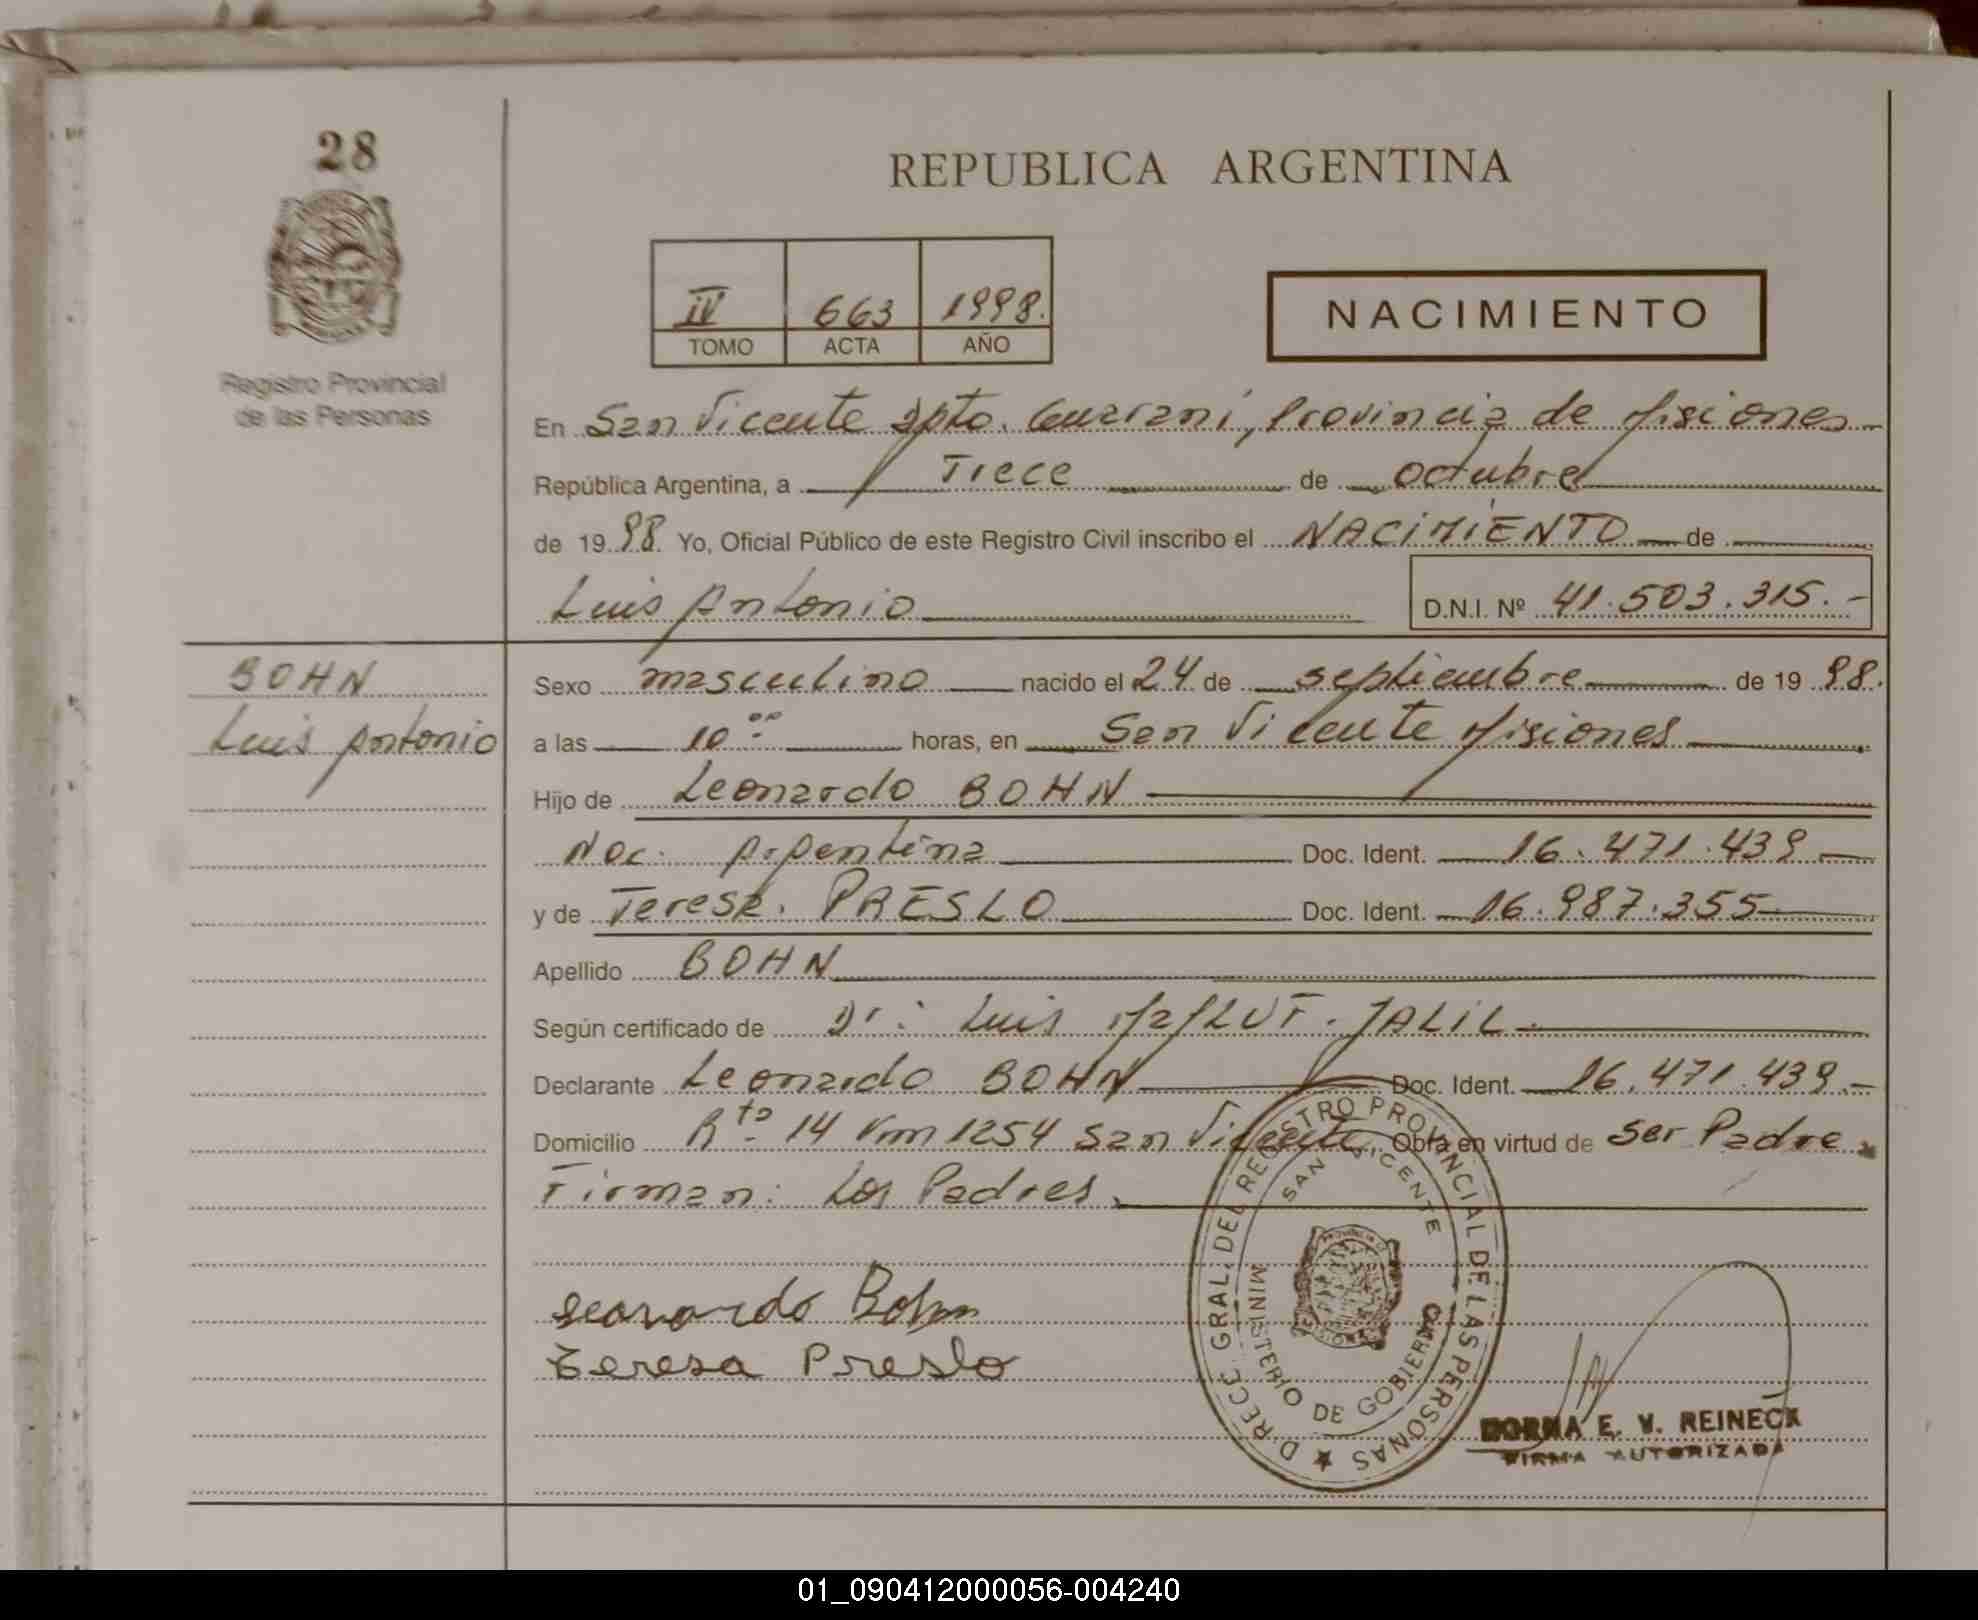 28
REPUBLICA ARGENTINA
IV 663 1998.
TOMO ACTA AÑO
NACIMIENTO
Registro Provincial
de las Personas
En San Vicente Dpto. Guaraní, Provincia de Misiones
República Argentina, a Trece de octubre
de 1998. Yo, Oficial Público de este Registro Civil inscribo el NACIMIENTO de
Luis Antonio D.N.I. Nº 41.503.315.-
BOHN
Luis Antonio
Sexo masculino nacido el 24 de septiembre de 1998.
a las 10 00 horas, en San Vicente Misiones
Hijo de Leonardo BOHN
Nac. Argentina Doc. Ident. 16.471.439
y de Teresa. PRESLO Doc. Ident. 16.987.355
Apellido BOHN
Según certificado de Dr: Luis JALIL
Declarante Leonardo BOHN Doc. Ident. 16.471.439.-
Domicilio Rta 14 Km 1254 San Vicente. Obra en virtud de ser Padre
Firman: Los Padres.
Leonardo Bohn
Teresa Preslo
DIRECC. GRAL. DEL REGISTRO PROVINCIAL DE LAS PERSONAS
SAN VICENTE
MINISTERIO DE GOBIERNO
NORMA E. V. REINECK
FIRMA AUTORIZADA
01_090412000056-004240